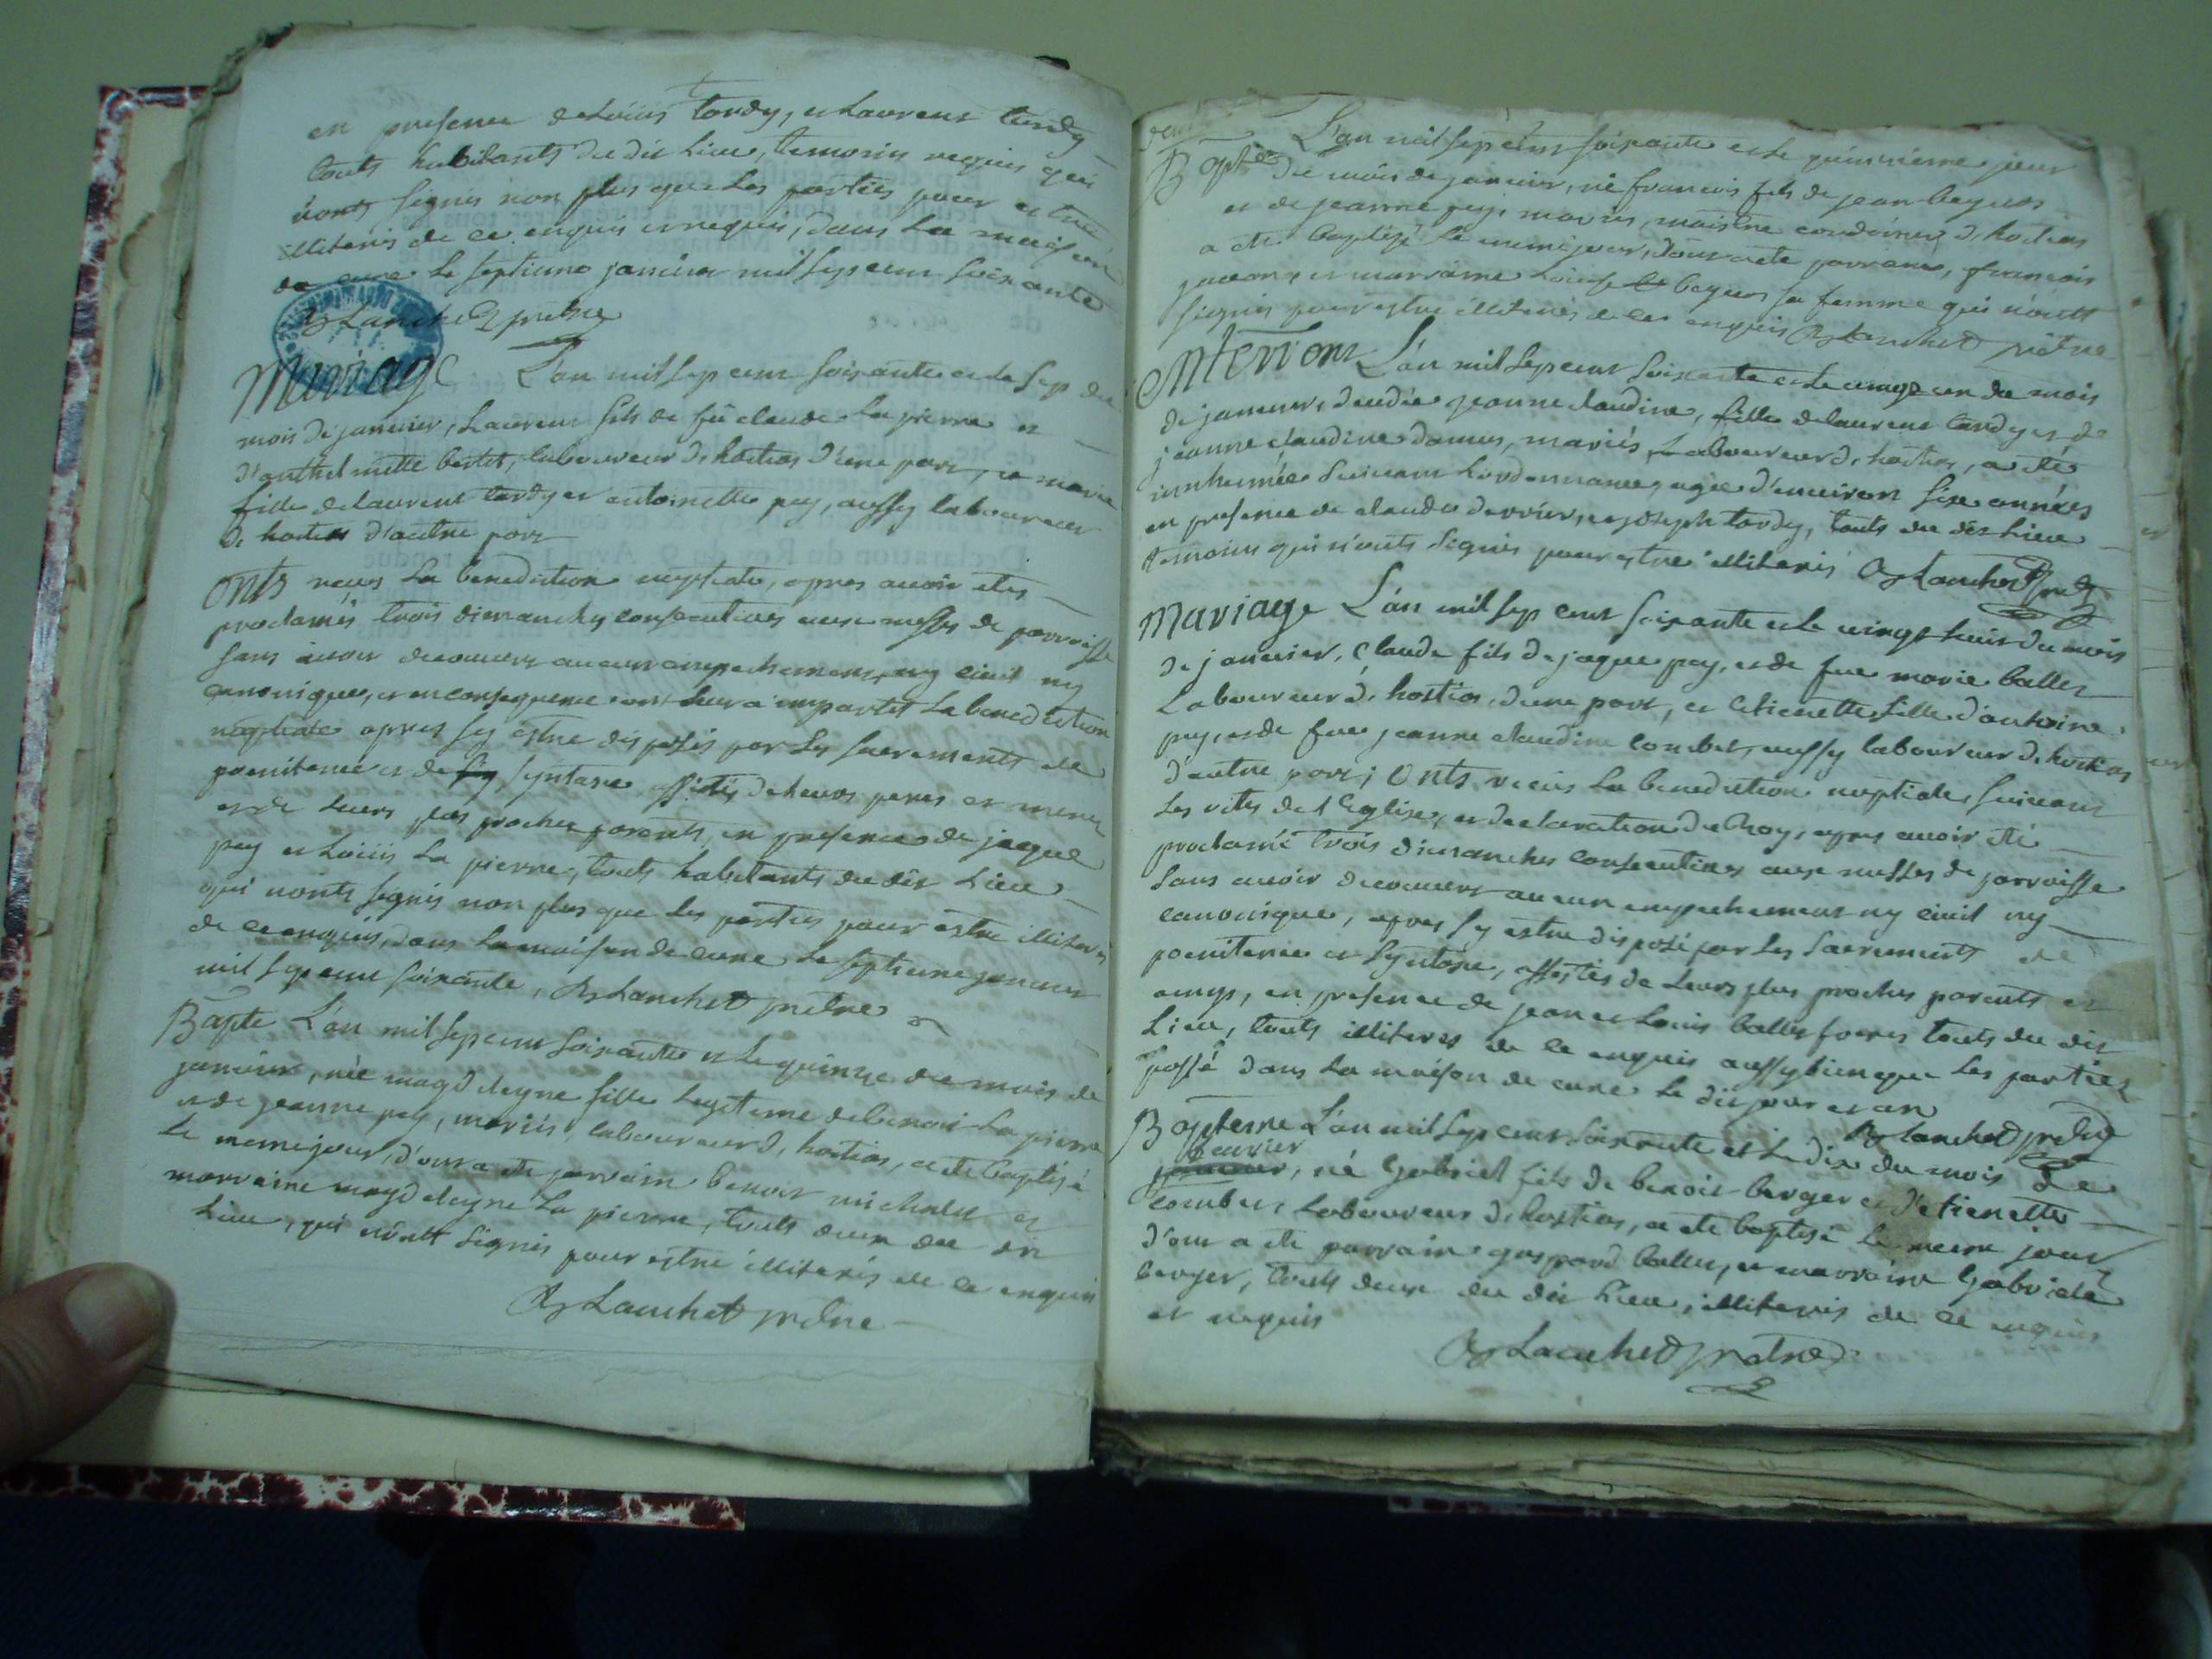 en presence de Loüis tardy, et Laurent tardy
touts habitants du dit Lieu, temoins requis qui
n'onts signés non plus que les parties pour estre
illiterés de ce enquis et requis, dans la maison
de cure le septieme janvier mil sept cent soixante
Lanchet prêtre
Mariage L'an mil sept cent soixante et le sept du
mois de janvier, Laurent fils de fû claude Lapierre et
d'anthelmette bertet, laboureur d'hostias d'une part, et marie
fille de Laurent tardy et antoinette pey, aussy laboureur
d'hostias d'autre part
onts reçus La benediction nuptiale, apres avoir étés
proclamés trois dimanches consecutives aux messes de parroisse
sans avoir decouvert aucun empechement, ny civil ny
canonique, et en consequence leur a impartit La benediction
nuptiale apres sy estre disposés par les sacrements de
poenitence et de syntaxe, assistés de leurs peres et meres
et de leurs plus proches parents, en presence de jaque
pey et Loüis La pierre, touts habitants du dit Lieu
qui n'onts signés non plus que les parties pour estre illiterés
de ce enquis, dans La maison de cure le septieme janvier
mil sept cent soixante, Lanchet prêtre
Bapte L'an mil sept cent soixante et le quinze du mois de
janvier, née magdeleyne fille legitime de benoit La pierre
et de jeanne pey, mariés, laboureur d'hostias, a été baptisé
le meme jour, dont a été parrain benoit michalet et
marraine magdeleyne La pierre, touts deux du dit
Lieu, qui n'ont signés pour estre illiterés de ce enquis
Lanchet prêtre
Bapte L'an mil sept cent soixante et le quinzieme jour
du mois de janvier, né francois fils de jean beguet
et de jeanne pey, mariés, maistre cordonnier d'hostias
a été baptisé le meme jour, dont a été parrain, francois
et marraine Loüise beguet sa femme qui n'ont
signés pour estre illiterés de ce enquis Lanchet prêtre
Enterrem L'an mil sept cent soixante et le vingt un du mois
de janvier, decedée jeanne claudine, fille de laurent tardy et de
jeanne claudine damet, mariés, Laboureur d'hostias, a été
innhumée suivant L'ordonnance, agée d'environ six années
en presence de claude derrier, et joseph tardy, touts du dit Lieu
temoins qui n'onts signés pour estre illiterés Lanchet prêt
Mariage L'an mil sept cent soixante et le vingt huit du mois
de janvier, claude fils de jaque pey, et de feue marie ballet
Laboureur d'hostias, d'une part, et etienette fille d'antoine
pey, et de feue jeanne claudine combet, aussy laboureur d'hostias
d'autre part; onts reçus La benediction nuptiale, suivant
Les rites de l'Eglise, et declaration du Roy, apres avoir été
proclamé trois dimanches consecutives aux messes de parroisse
sans avoir decouvert aucun empechement ny civil ny
canonique, apres sy estre disposé par les sacrements de
poenitence et syntaxe, assistés de leurs plus proches parents et
amys, en presence de jean et Louis ballet freres touts du dit
Lieu, touts illiteres de ce enquis aussy bien que les parties
passé dans La maison de cure le dit jour et an
Lanchet prêtre
Bapteme L'an mil sept cent soixante et le dix du mois de
fevrier
janvier, né Gabriel fils de benoit berger et d'etienette
combet, Laboureur d'hostias, a été baptisé le meme jour
d'ont a été parrain gaspard ballet, et marraine Gabriele
berger, touts deux du dit Lieu, illiterés de ce enquis
et requis
Lanchet prêtre